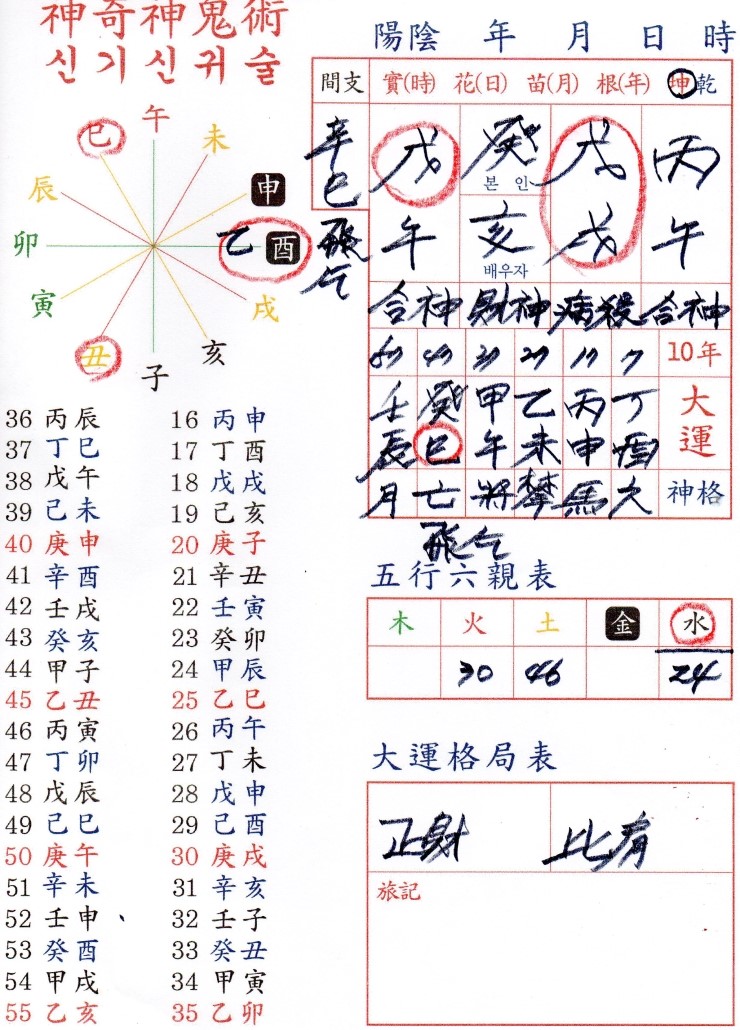 神奇神鬼術
신기신귀술
陽陰 年 月 日 時
間支 實(時) 花(日) 苗(月) 根(年) 坤乾
辛巳 戊 癸 戊 丙
본인
午 亥 戌 午
배우자
飛
合神 財神 病殺 合神
7 10年
壬 癸 甲 乙 丙 丁 大運
辰 巳 午 未 申 酉
月 亡 將 攀 馬 神格
飛
五行六親表
木 火 土 金 水
30 46 24
大運格局表
正財 比肩
旅記
午
巳 未
辰 申
卯 乙 酉
寅 戌
丑 亥
子
36 丙辰 16 丙申
37 丁巳 17 丁酉
38 戊午 18 戊戌
39 己未 19 己亥
40 庚申 20 庚子
41 辛酉 21 辛丑
42 壬戌 22 壬寅
43 癸亥 23 癸卯
44 甲子 24 甲辰
45 乙丑 25 乙巳
46 丙寅 26 丙午
47 丁卯 27 丁未
48 戊辰 28 戊申
49 己巳 29 己酉
50 庚午 30 庚戌
51 辛未 31 辛亥
52 壬申 32 壬子
53 癸酉 33 癸丑
54 甲戌 34 甲寅
55 乙亥 35 乙卯